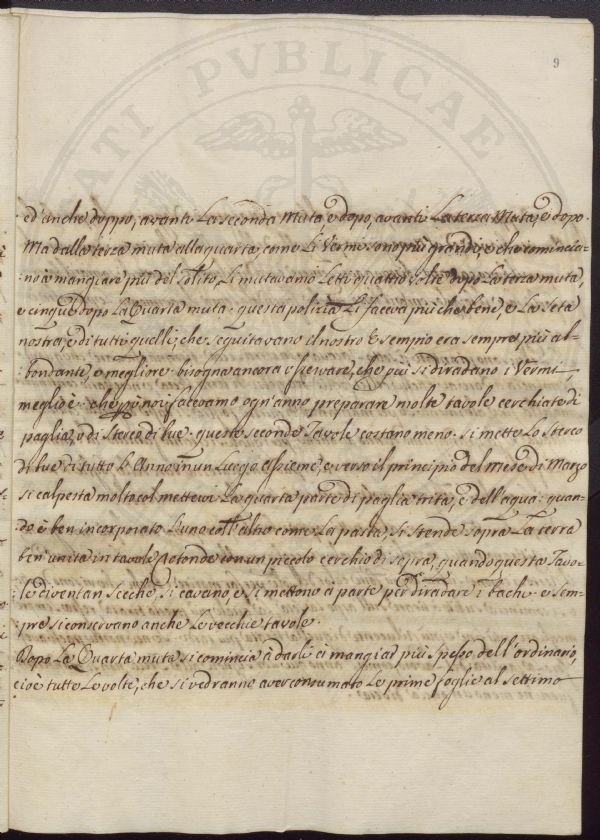 9
ATI PVBLICAE
ed'anche doppo, avanti La seconda Muta e dopo, avanti La terza Muta, e dopo.
Ma dalla terza muta alla quarta, come Li Vermi sono più grandi, e che comincia-
no à mangiare più del solito, Li mutavamo Letti quattro volte dopo La terza muta,
e cinque dopo La Quarta muta. questa polizia Li faceva più che bene, e La Seta
nostra, e di tutti quelli, che seguitavano il nostro Esempio era sempre più ab-
bondante, e megliore. bisogna ancora osservare, che più si diradano i Vermi,
meglio è. che per noi facevamo ogn'anno preparare molte tavole cerchiate di
paglia, ò di sterco di bue. queste seconde Tavole costano meno. si mette Lo sterco
di bue di tutto L'Anno in un Luogo assieme, e verso il principio del mese di Marzo
si calpesta molto col mettervi La quarta parte di paglia trita, e dell'aqua: quan-
do è ben incorporato L'uno coll'altro come La pasta, si stende sopra La terra
ben unita in tavole rotonde con un piccolo cerchio di sopra, quando queste Tavo-
le diventan secche, si cavano, e si mettono à parte per diradare i bachi. e sem-
pre si conservano anche Le vecchie tavole.
Dopo La Quarta muta si comincia à darli à mangiar più spesso dell'ordinario,
cioè tutte Le volte, che si vedranno aver consumato Le prime foglie al settimo